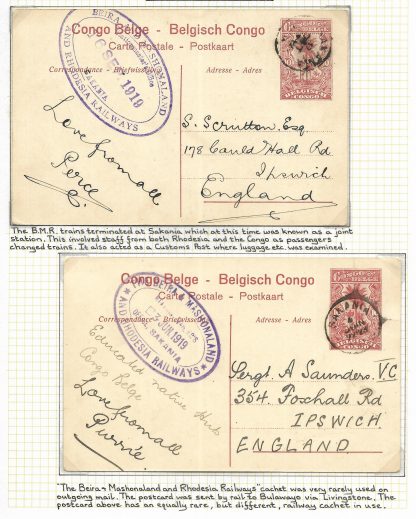 Congo Belge - Belgisch Congo
Carte Postale - Postkaart
Correspondance - Briefwisseling
Adresse - Adres
BEIRA MASHONALAND
AND RHODESIA RAILWAYS
SEP 1919
SAKANIA
BELGISCH
CONGO
Love from all
Percie
S. Scrutton. Esq
178 Cauld Hall Rd
Ipswich
England
The B.M.R. trains terminated at Sakania which at this time was known as a joint
station. This involved staff from both Rhodesia and the Congo as passengers
changed trains. It also acted as a Customs Post where luggage etc. was examined.
Congo Belge - Belgisch Congo
Carte Postale - Postkaart
Correspondance - Briefwisseling
Adresse - Adres
BEIRA & MASHONALAND
AND RHODESIA RAILWAYS
JUN 1919
SAKANIA
SAKANIA
CONGO
Educated native
Congo Belge
Love from all
Sergt A Saunders. VC
354. Foxhall Rd
IPSWICH
ENGLAND.
"The Beira & Mashonaland and Rhodesia Railways" cachet was very rarely used on
outgoing mail. The postcard was sent by rail to Bulawayo via Livingstone. The
postcard above has an equally rare, but different, railway cachet in use.